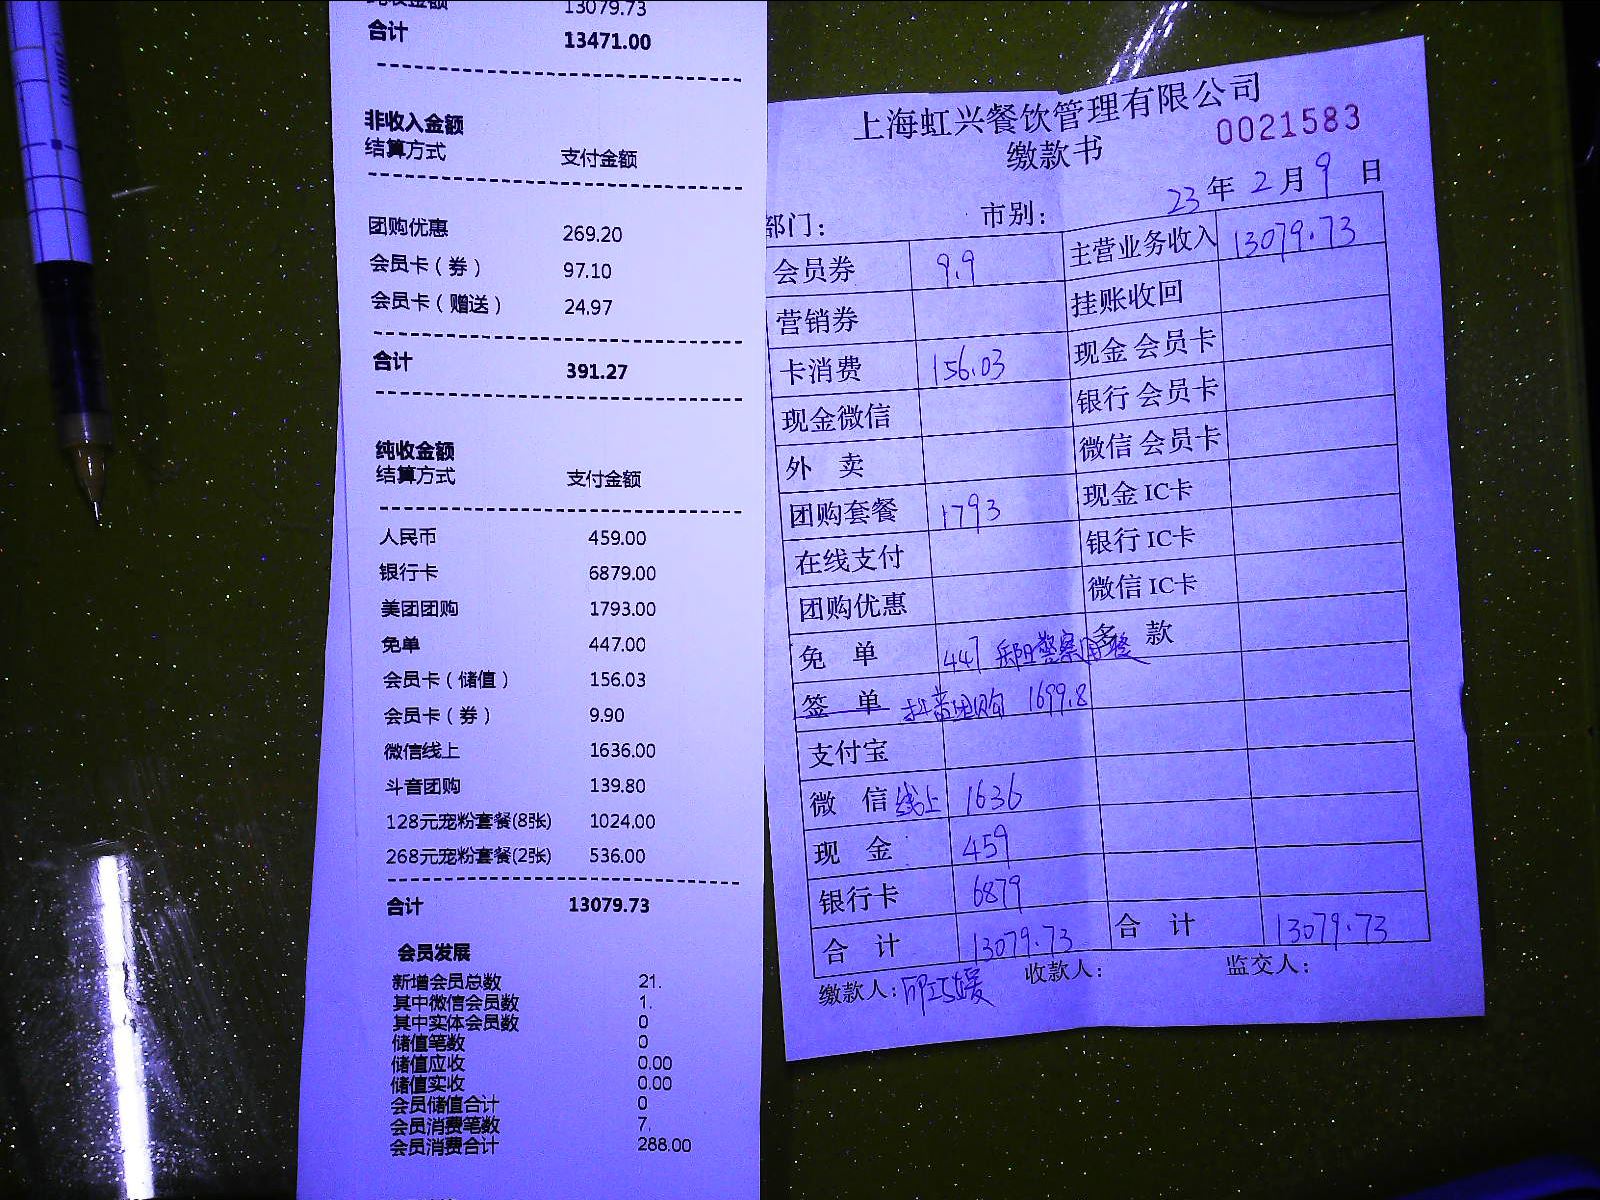 纯收金额 13079.73
合计 13471.00
非收入金额
结算方式 支付金额
团购优惠 269.20
会员卡（券） 97.10
会员卡（赠送） 24.97
合计 391.27
纯收金额
结算方式 支付金额
人民币 459.00
银行卡 6879.00
美团团购 1793.00
免单 447.00
会员卡（储值） 156.03
会员卡（券） 9.90
微信线上 1636.00
斗音团购 139.80
128元宠粉套餐(8张) 1024.00
268元宠粉套餐(2张) 536.00
合计 13079.73
会员发展
新增会员总数 21.
其中微信会员数 1.
其中实体会员数 0
储值笔数 0
储值应收 0.00
储值实收 0.00
会员储值合计 0
会员消费笔数 7.
会员消费合计 288.00
上海虹兴餐饮管理有限公司
0021583
缴款书
23年2月9日
部门： 市别：
会员券 9.9 主营业务收入 13079.73
营销券 挂账收回
卡消费 156.03 现金 会员卡
现金微信 银行 会员卡
外 卖 微信 会员卡
团购套餐 1793 现金 IC卡
在线支付 银行 IC卡
团购优惠 微信 IC卡
免 单 447 警察用餐 款
签 单 抖音团购 1699.8
支付宝
微 信线上 1636
现 金 459
银行卡 6879
合 计 13079.73 合 计 13079.73
缴款人： 收款人： 监交人：